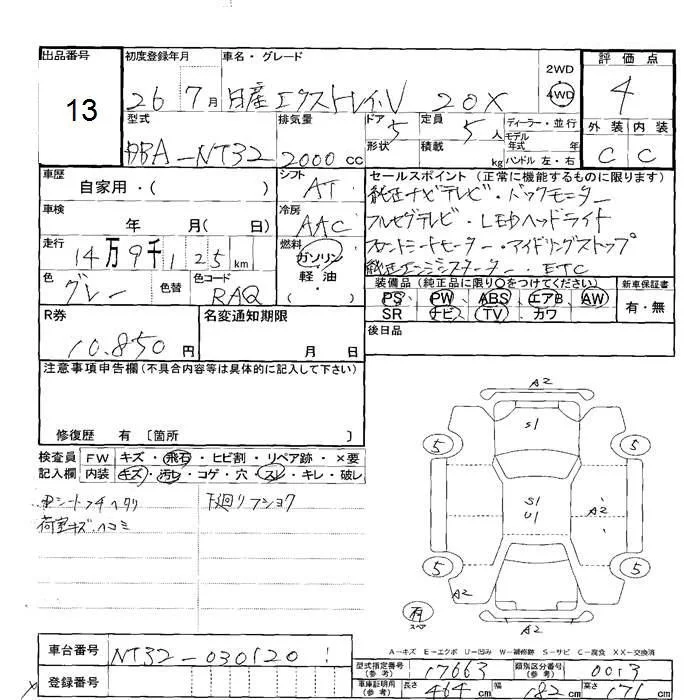 出品番号
13
初度登録年月
26 7月
車名・グレード
日産 エクストレイル 20X
2WD
4WD
評価点
4
外装 内装
C C
型式
DBA-NT32
排気量
2000 CC
ドア 5
形状
定員 5人
積載 kg
ディーラー・並行
モデル
年式 年
ハンドル 左・右
車歴
自家用・( )
シフト
AT
セールスポイント (正常に機能するものに限ります)
純正ナビテレビ・バックモニター
フルセグテレビ・LEDヘッドライト
フロントシートヒーター・アイドリングストップ
純正エンジンスターター・ETC
車検
年 月( 日)
冷房
AAC
走行
14万9千125km
燃料
ガソリン
軽油
( )
色
グレー
色替
色コード
RAQ
装備品 (純正品に限り○をつけてください)
PS PW ABS エアB AW
SR ナビ TV カワ
新車保証書
有・無
R券
10.850円
名変通知期限
月 日
後日品
注意事項申告欄 (不具合内容等は具体的に記入して下さい)
修復歴 有 〔箇所 〕
検査員
記入欄
FW キズ・飛石・ヒビ割・リペア跡・×要
内装 キズ・汚レ・コゲ・穴・スレ・キレ・破レ
シートフチヘタリ
荷室キズ・ヘコミ
下廻りフショク
A2
S1
5
5
S1
U1
A2
5
5
A2
A2
有
スペア
A-キズ E-エクボ U-凹み W-補修跡 S-サビ C-腐食 XX-交換済
車台番号
NT32-030120
型式指定番号
(参考)
17663
類別区分番号
(参考)
0013
登録番号
車庫証明用
(参考)
長さ 464cm 幅 182cm 高さ 171cm